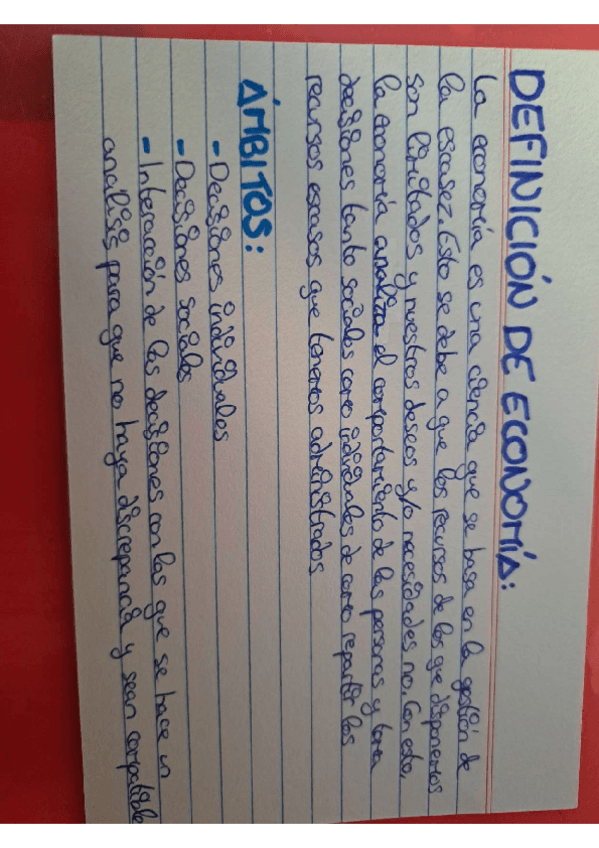 DEFINICIÓN DE ECONOMÍA:
La economía es una ciencia que se basa en la gestión de
la escasez. Esto se debe a que los recursos de los que disponemos
son limitados y nuestros deseos y/o necesidades no. Con esto,
la economía analiza el comportamiento de las personas y toma
decisiones tanto sociales como individuales de como repartir los
recursos escasos que tenemos administrados
ÁMBITOS:
- Decisiones individuales
- Decisiones sociales
- Interacción de las decisiones con las que se hace un
análisis para que no haya discrepancia y sean compatible